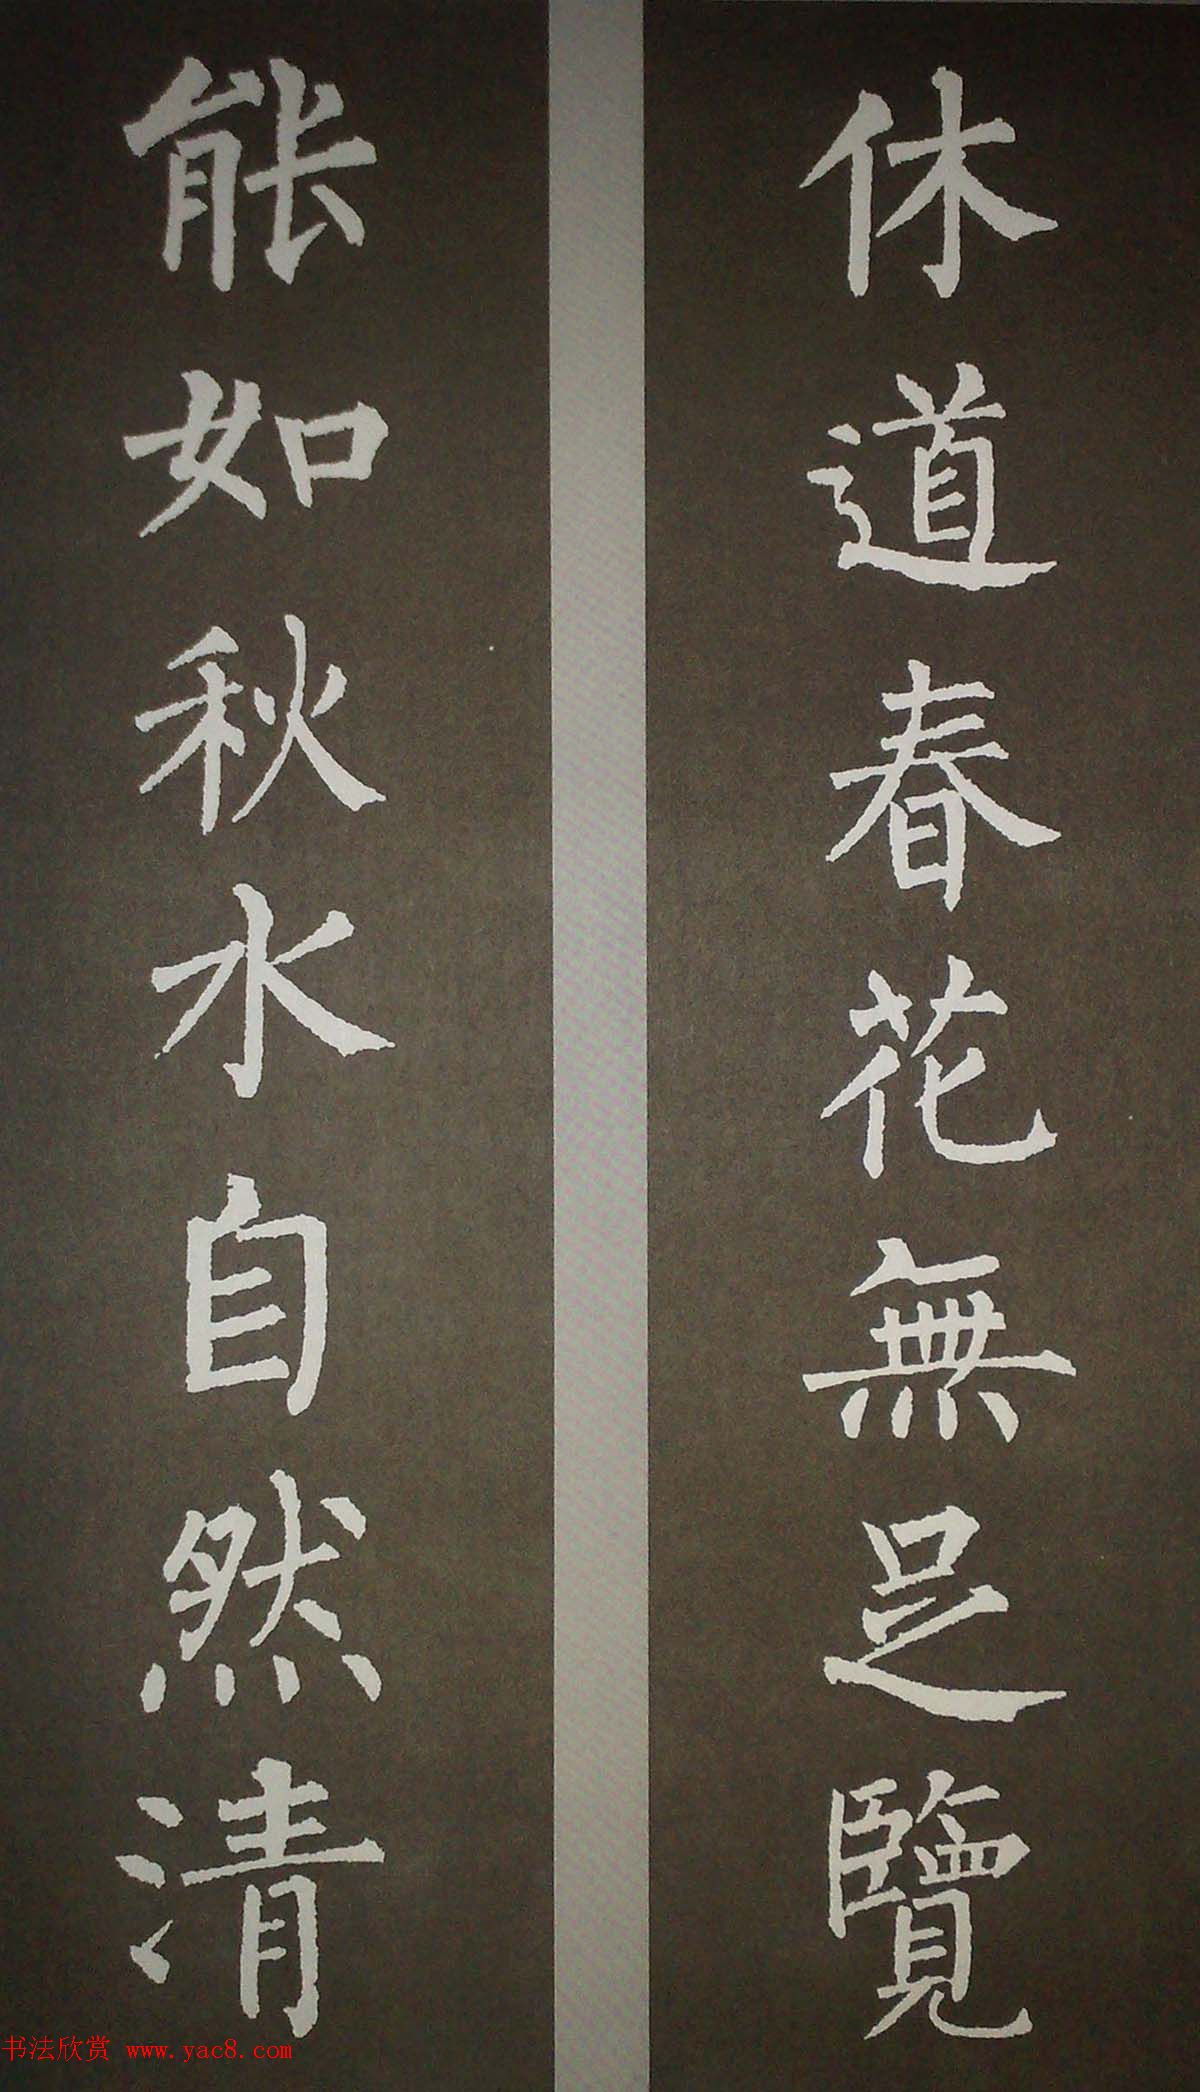 休道春花無足覽
能如秋水自然清
书法欣赏 www.yac8.com